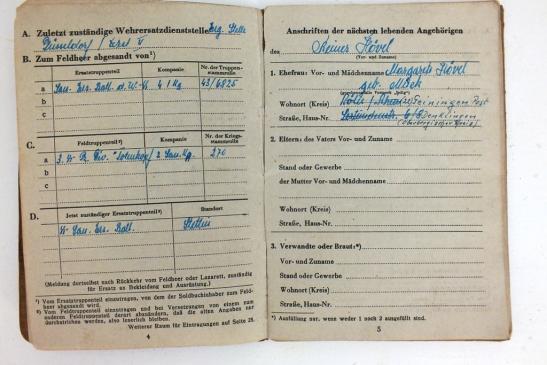 A. Zuletzt zuständige Wehrersatzdienststelle: Erg. Stelle
Düsseldorf /
B. Zum Feldheer abgesandt von¹)
Ersatztruppenteil Kompanie Nr. der Truppen-
stammrolle
a San. Ers. Batl. d. W-SS 4./ 43/6825
b
c
C. Feldtruppenteil²) Kompanie Nr. der Kriegs-
stammrolle
a 3. SS Pz. Div. "Totenkopf" 2 San. Kp. 270
b
c
D. Jetzt zuständiger Ersatztruppenteil²) Standort
SS San. Ers. Batl. Stettin
(Meldung dortselbst nach Rückkehr vom Feldheer oder Lazarett, zuständig
für Ersatz an Bekleidung und Ausrüstung.)
¹) Vom Ersatztruppenteil einzutragen, von dem der Soldbuchinhaber zum Feld-
heer abgesandt wird.
²) Vom Feldtruppenteil einzutragen und bei Versetzungen von einem zum
anderen Feldtruppenteil derart abzuändern, daß die alten Angaben nur
durchstrichen werden, also leserlich bleiben.
Weiterer Raum für Eintragungen auf Seite 28.
4
Anschriften der nächsten lebenden Angehörigen
des
(Vor- und Zuname)
1. Ehefrau: Vor- und Mädchenname Margarete
geb.
Wohnort (Kreis) Post
Straße, Haus-Nr. Denklingen
2. Eltern: des Vaters Vor- und Zuname
Stand oder Gewerbe
der Mutter Vor- und Mädchenname
Wohnort (Kreis)
Straße, Haus-Nr.
3. Verwandte oder Braut:*)
Vor- und Zuname
Stand oder Gewerbe
Wohnort (Kreis)
Straße, Haus-Nr.
*) Ausfüllung nur, wenn weder 1 noch 2 ausgefüllt sind.
5